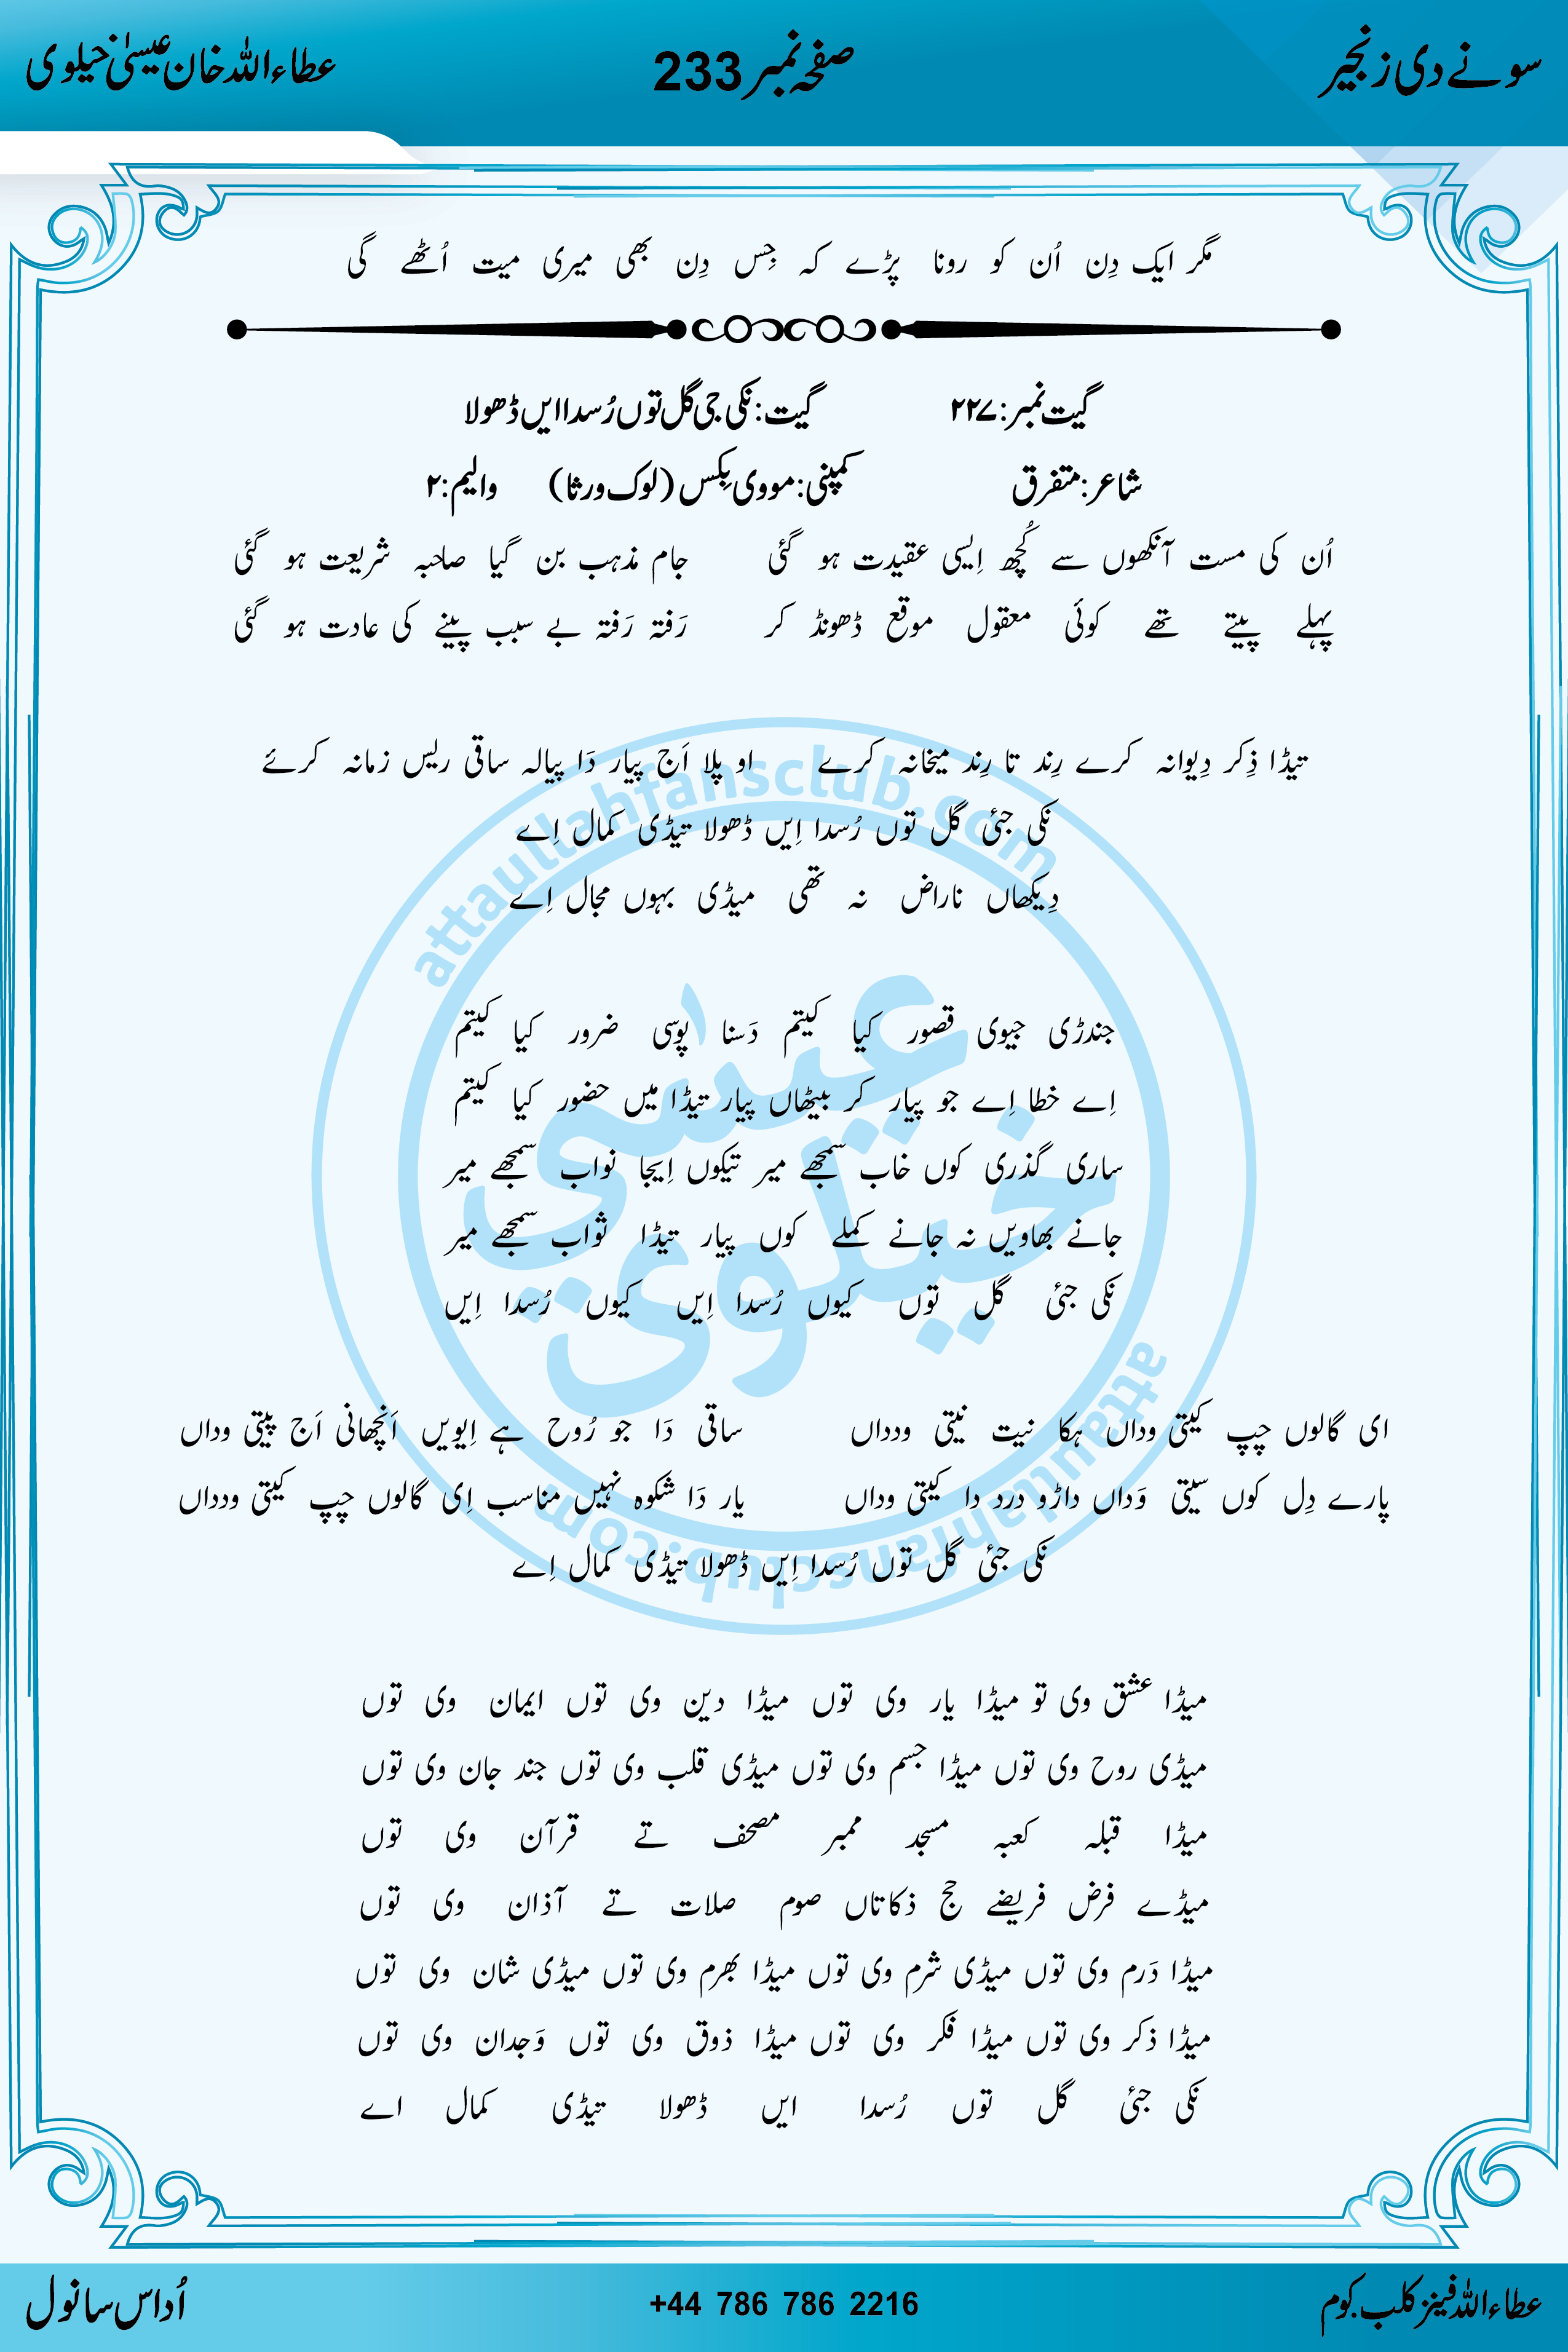 سونے دی زنجیر صفحہ نمبر 233 عطاءاللہ خان عیسیٰ خیلوی
مگر ایک دِن اُن کو رونا پڑے کہ جِس دِن بھی میری میت اُٹھے گی
گیت نمبر: ۲۲۷ گیت: نکی جی گل توں رُسدا ایں ڈھولا
شاعر: متفرق کمپنی: مووی بِکس (لوک ورثا) والیم: ۲
اُن کی مست آنکھوں سے کُچھ اِیسی عقیدت ہو گئی جام مذہب بن گیا صاحبہ شریعت ہو گئی
پہلے پیتے تھے کوئی معقول موقع ڈھونڈ کر رَفتہ رَفتہ بے سبب پینے کی عادت ہو گئی
تیڈا ذِکر دِیوانہ کرے رِند تا رِند میخانہ کرے او پلا اَج پیار دَا پیالہ ساقی ریس زمانہ کرئے
نکی جئی گل توں رُسدا اِیں ڈھولا تیڈی کمال اِے
دِیکھاں ناراض نہ تھی میڈی بہوں مجال اِے
جندڑی جیوی قصور کیا کیتم دَسنا پوسی ضرور کیا کیتم
اِے خطا اِے جو پیار کر بیٹھاں پیار تیڈا میں حضور کیا کیتم
ساری گذری کوں خاب سمجھے میر تیکوں اِیجا نواب سمجھے میر
جانے بھاویں نہ جانے کملے کوں پیار تیڈا ثواب سمجھے میر
نکی جئی گل توں کیوں رُسدا اِیں کیوں رُسدا اِیں
ای گالوں چپ کیتی وداں ہکا نیت نیتی ودداں ساقی دَا جو رُوح ہے اِیویں اَنچھانی اَج پیتی وداں
پارے دِل کوں سیتی وَداں داڑو درد دا کیتی وداں یار دَا شکوہ نہیں مناسب اِی گالوں چپ کیتی ودداں
نکی جئی گل توں رُسدا اِیں ڈھولا تیڈی کمال اِے
میڈا عشق وی تو میڈا یار وی توں میڈا دین وی توں ایمان وی توں
میڈی روح وی توں میڈا جسم وی توں میڈی قلب وی توں جند جان وی توں
میڈا قبلہ کعبہ مسجد ممبر مصحف تے قرآن وی توں
میڈے فرض فریضے حج ذکاتاں صوم صلات تے آذان وی توں
میڈا دَرم وی توں میڈی شرم وی توں میڈا بھرم وی توں میڈی شان وی توں
میڈا ذکر وی توں میڈا فکر وی توں میڈا ذوق وی توں وَجدان وی توں
نکی جئی گل توں رُسدا ایں ڈھولا تیڈی کمال اے
attaullahfansclub.com
عیسٰی
خیلوی
attaullahfansclub.com
عطاءاللہ فینز کلب.کوم +44 786 786 2216 اُداس سانول